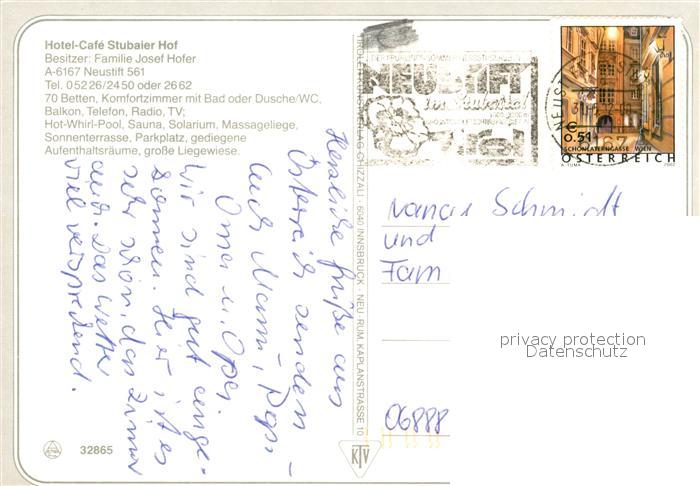 Hotel-Café Stubaier Hof
Besitzer: Familie Josef Hofer
A-6167 Neustift 561
Tel. 0 52 26/24 50 oder 26 62
70 Betten, Komfortzimmer mit Bad oder Dusche/WC,
Balkon, Telefon, Radio, TV;
Hot-Whirl-Pool, Sauna, Solarium, Massageliege,
Sonnenterrasse, Parkplatz, gediegene
Aufenthaltsräume, große Liegewiese.
Herzliche Grüße aus
Österreich senden
Euch Mami, Papi
Oma u. Opa.
Wir sind gut ange-
kommen. Hier ist es
sehr schön, das Zimmer
auch. Das Wetter
viel versprechend.
32865
6040 INNSBRUCK - NEU-RUM, KAPLANSTRASSE 10
KTV
NEUSTIFT
im Stubaital
€ 0.51
SCHÖNLATERNGASSE WIEN
ÖSTERREICH
A. TUMA
2002
Schmidt
und
Fam
06888
privacy protection
Datenschutz